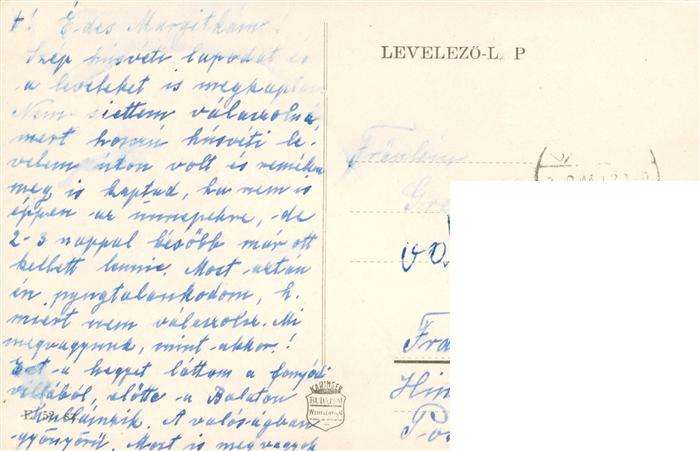 Édes Margitkám!
Szép húsvéti lapodat és
a leveleket is megkaptam
Nem siettem válaszolni,
mert hosszú húsvéti le-
velem úton volt és remélem
meg is kaptad, ha nem is
éppen az ünnepekre, de
2-3 nappal később már ott
kellett lennie. Most aztán
én nyugtalankodom, h.
miért nem válaszolsz. Mi
megvagyunk, mint akkor!
Ezt a hegyet láttam a fonyódi
villából, előtte a Balaton
A valóságban
gyönyörű. Most is megvagyok
LEVELEZŐ-L P
Fräulein
Gre
Fra
Hin
Po
KARINGER
BUDAPEST